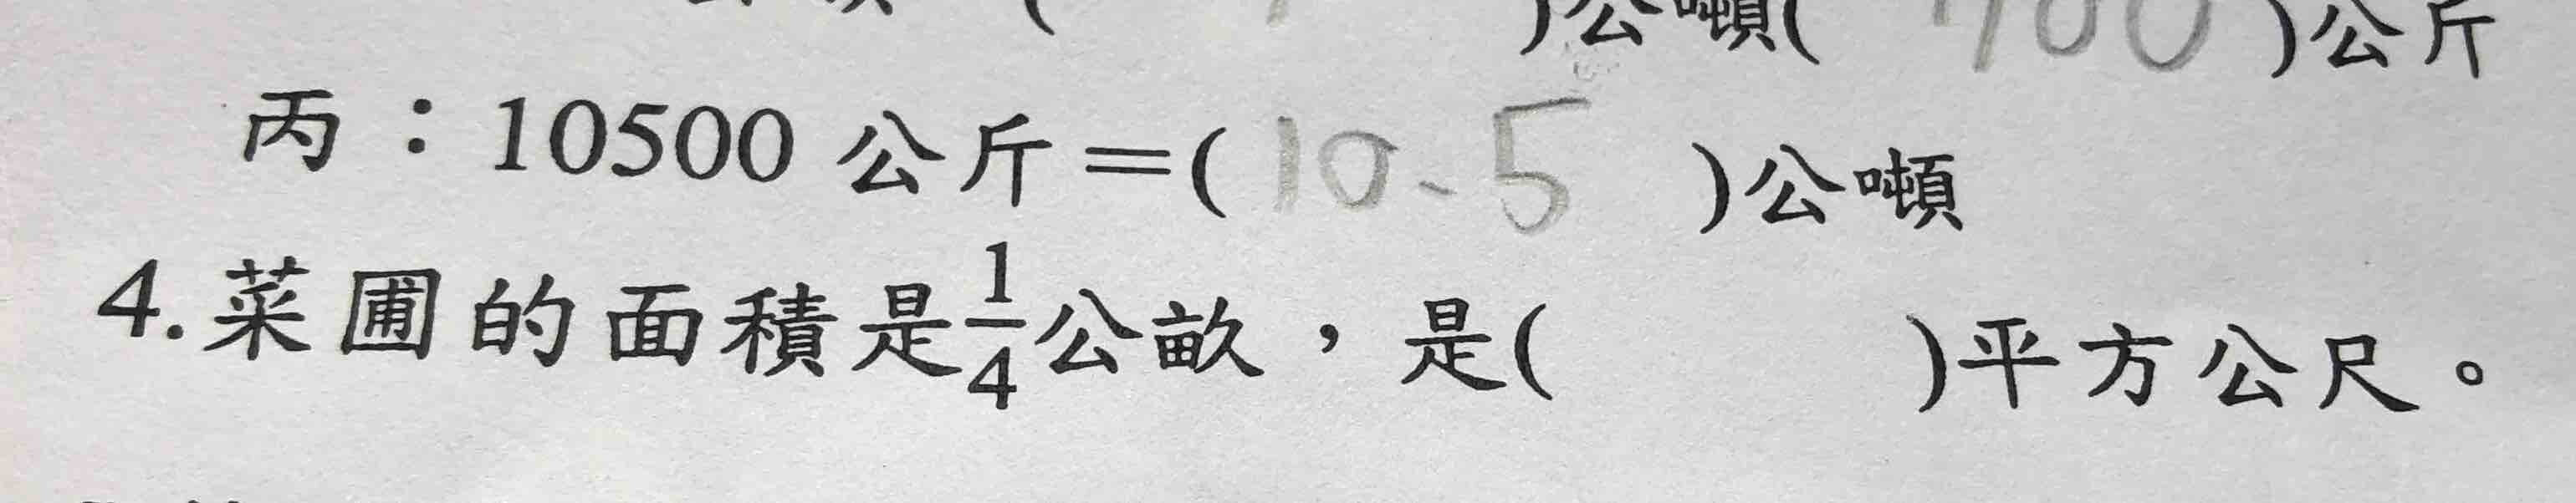 )公噸( 700 )公斤
丙：10500 公斤=( 10.5 )公噸
4.菜圃的面積是1/4公畝，是( )平方公尺。